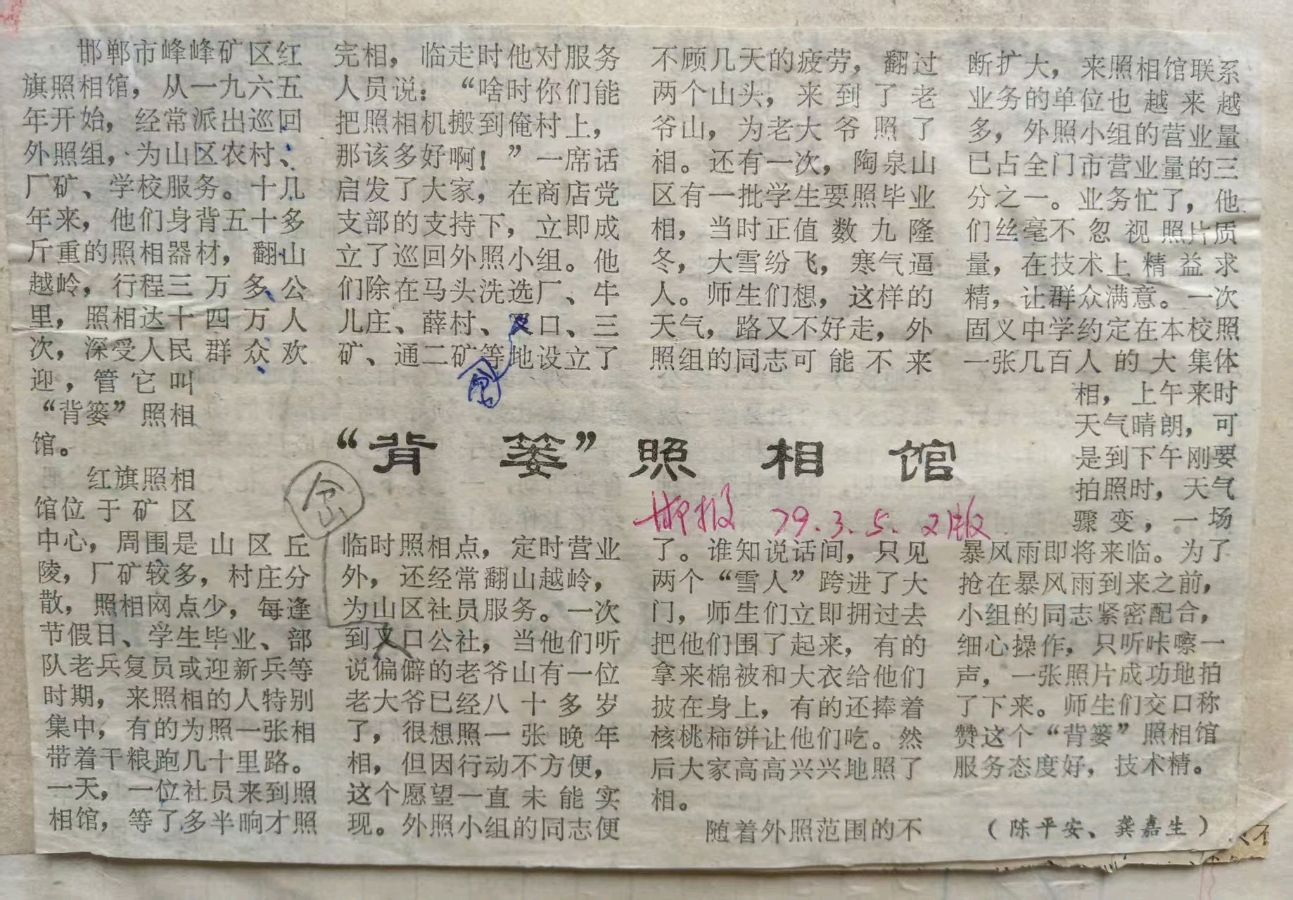 “背篓”照相馆
邯报 79.3.5.2版
邯郸市峰峰矿区红
旗照相馆，从一九六五
年开始，经常派出巡回
外照组，为山区农村、
厂矿、学校服务。十几
年来，他们身背五十多
斤重的照相器材，翻山
越岭，行程三万多公
里，照相达十四万人
次，深受人民群众欢
迎，管它叫
“背篓”照相
馆。
红旗照相
馆位于矿区
中心，周围是山区丘
陵，厂矿较多，村庄分
散，照相网点少，每逢
节假日、学生毕业、部
队老兵复员或迎新兵等
时期，来照相的人特别
集中，有的为照一张相
带着干粮跑几十里路。
一天，一位社员来到照
相馆，等了多半晌才照
完相，临走时他对服务
人员说：“啥时你们能
把照相机搬到俺村上，
那该多好啊！”一席话
启发了大家，在商店党
支部的支持下，立即成
立了巡回外照小组。他
们除在马头洗选厂、牛
儿庄、薛村、叉口、三
矿、通二矿等地设立了
岔
岔
临时照相点，定时营业
外，还经常翻山越岭，
为山区社员服务。一次
到叉口公社，当他们听
说偏僻的老爷山有一位
老大爷已经八十多岁
了，很想照一张晚年
相，但因行动不方便，
这个愿望一直未能实
现。外照小组的同志便
不顾几天的疲劳，翻过
两个山头，来到了老
爷山，为老大爷照了
相。还有一次，陶泉山
区有一批学生要照毕业
相，当时正值数九隆
冬，大雪纷飞，寒气逼
人。师生们想，这样的
天气，路又不好走，外
照组的同志可能不来
了。谁知说话间，只见
两个“雪人”跨进了大
门，师生们立即拥过去
把他们围了起来，有的
拿来棉被和大衣给他们
披在身上，有的还捧着
核桃柿饼让他们吃。然
后大家高高兴兴地照了
相。
随着外照范围的不
断扩大，来照相馆联系
业务的单位也越来越
多，外照小组的营业量
已占全门市营业量的三
分之一。业务忙了，他
们丝毫不忽视照片质
量，在技术上精益求
精，让群众满意。一次
固义中学约定在本校照
一张几百人的大集体
相，上午来时
天气晴朗，可
是到下午刚要
拍照时，天气
骤变，一场
暴风雨即将来临。为了
抢在暴风雨到来之前，
小组的同志紧密配合，
细心操作，只听咔嚓一
声，一张照片成功地拍
了下来。师生们交口称
赞这个“背篓”照相馆
服务态度好，技术精。
（陈平安、龚嘉生）